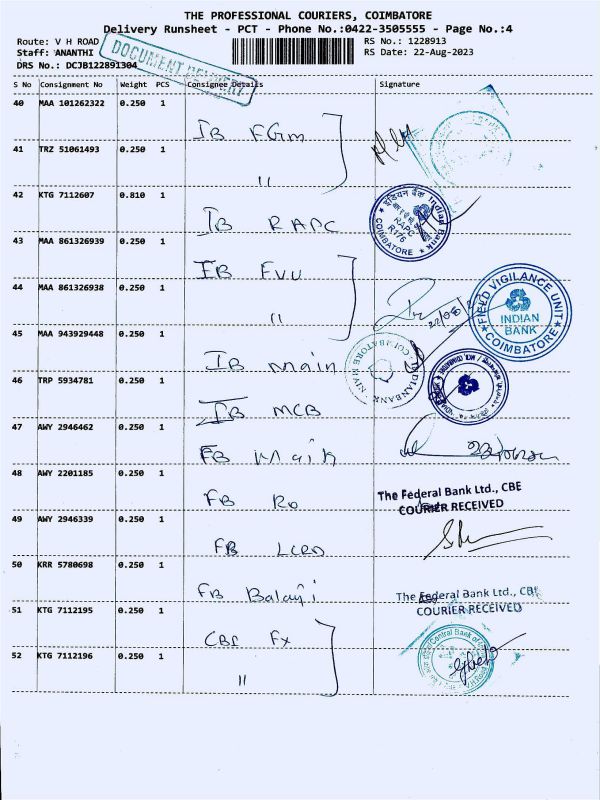 THE PROFESSIONAL COURIERS, COIMBATORE
Delivery Runsheet - PCT - Phone No.:0422-3505555 - Page No.:4
Route: V H ROAD
Staff: ANANTHI
DRS No.: DCJB122891304
DOCUMENT DELIVERY
RS No.: 1228913
RS Date: 22-Aug-2023
S No Consignment No Weight PCS Consignee Details Signature
40 MAA 101262322 0.250 1 IB FGm
41 TRZ 51061493 0.250 1 "
42 KTG 7112607 0.810 1 IB RAPC
इंडियन बैंक Indian Bank
RAPC
R176
COIMBATORE
43 MAA 861326939 0.250 1 IB FVU
44 MAA 861326938 0.250 1 "
22/08/2
FIELD VIGILANCE UNIT
INDIAN
BANK
COIMBATORE
45 MAA 943929448 0.250 1 IB main
46 TRP 5934781 0.250 1 IB MCB
47 AWY 2946462 0.250 1 FB Main
48 AWY 2201185 0.250 1 FB Ro
The Federal Bank Ltd., CBE
COURIER RECEIVED
49 AWY 2946339 0.250 1 FB LCRD
50 KRR 5780698 0.250 1 FB Balaji
The Federal Bank Ltd., CBE
COURIER RECEIVED
51 KTG 7112195 0.250 1 CBI Fx
Central Bank of
52 KTG 7112196 0.250 1 "